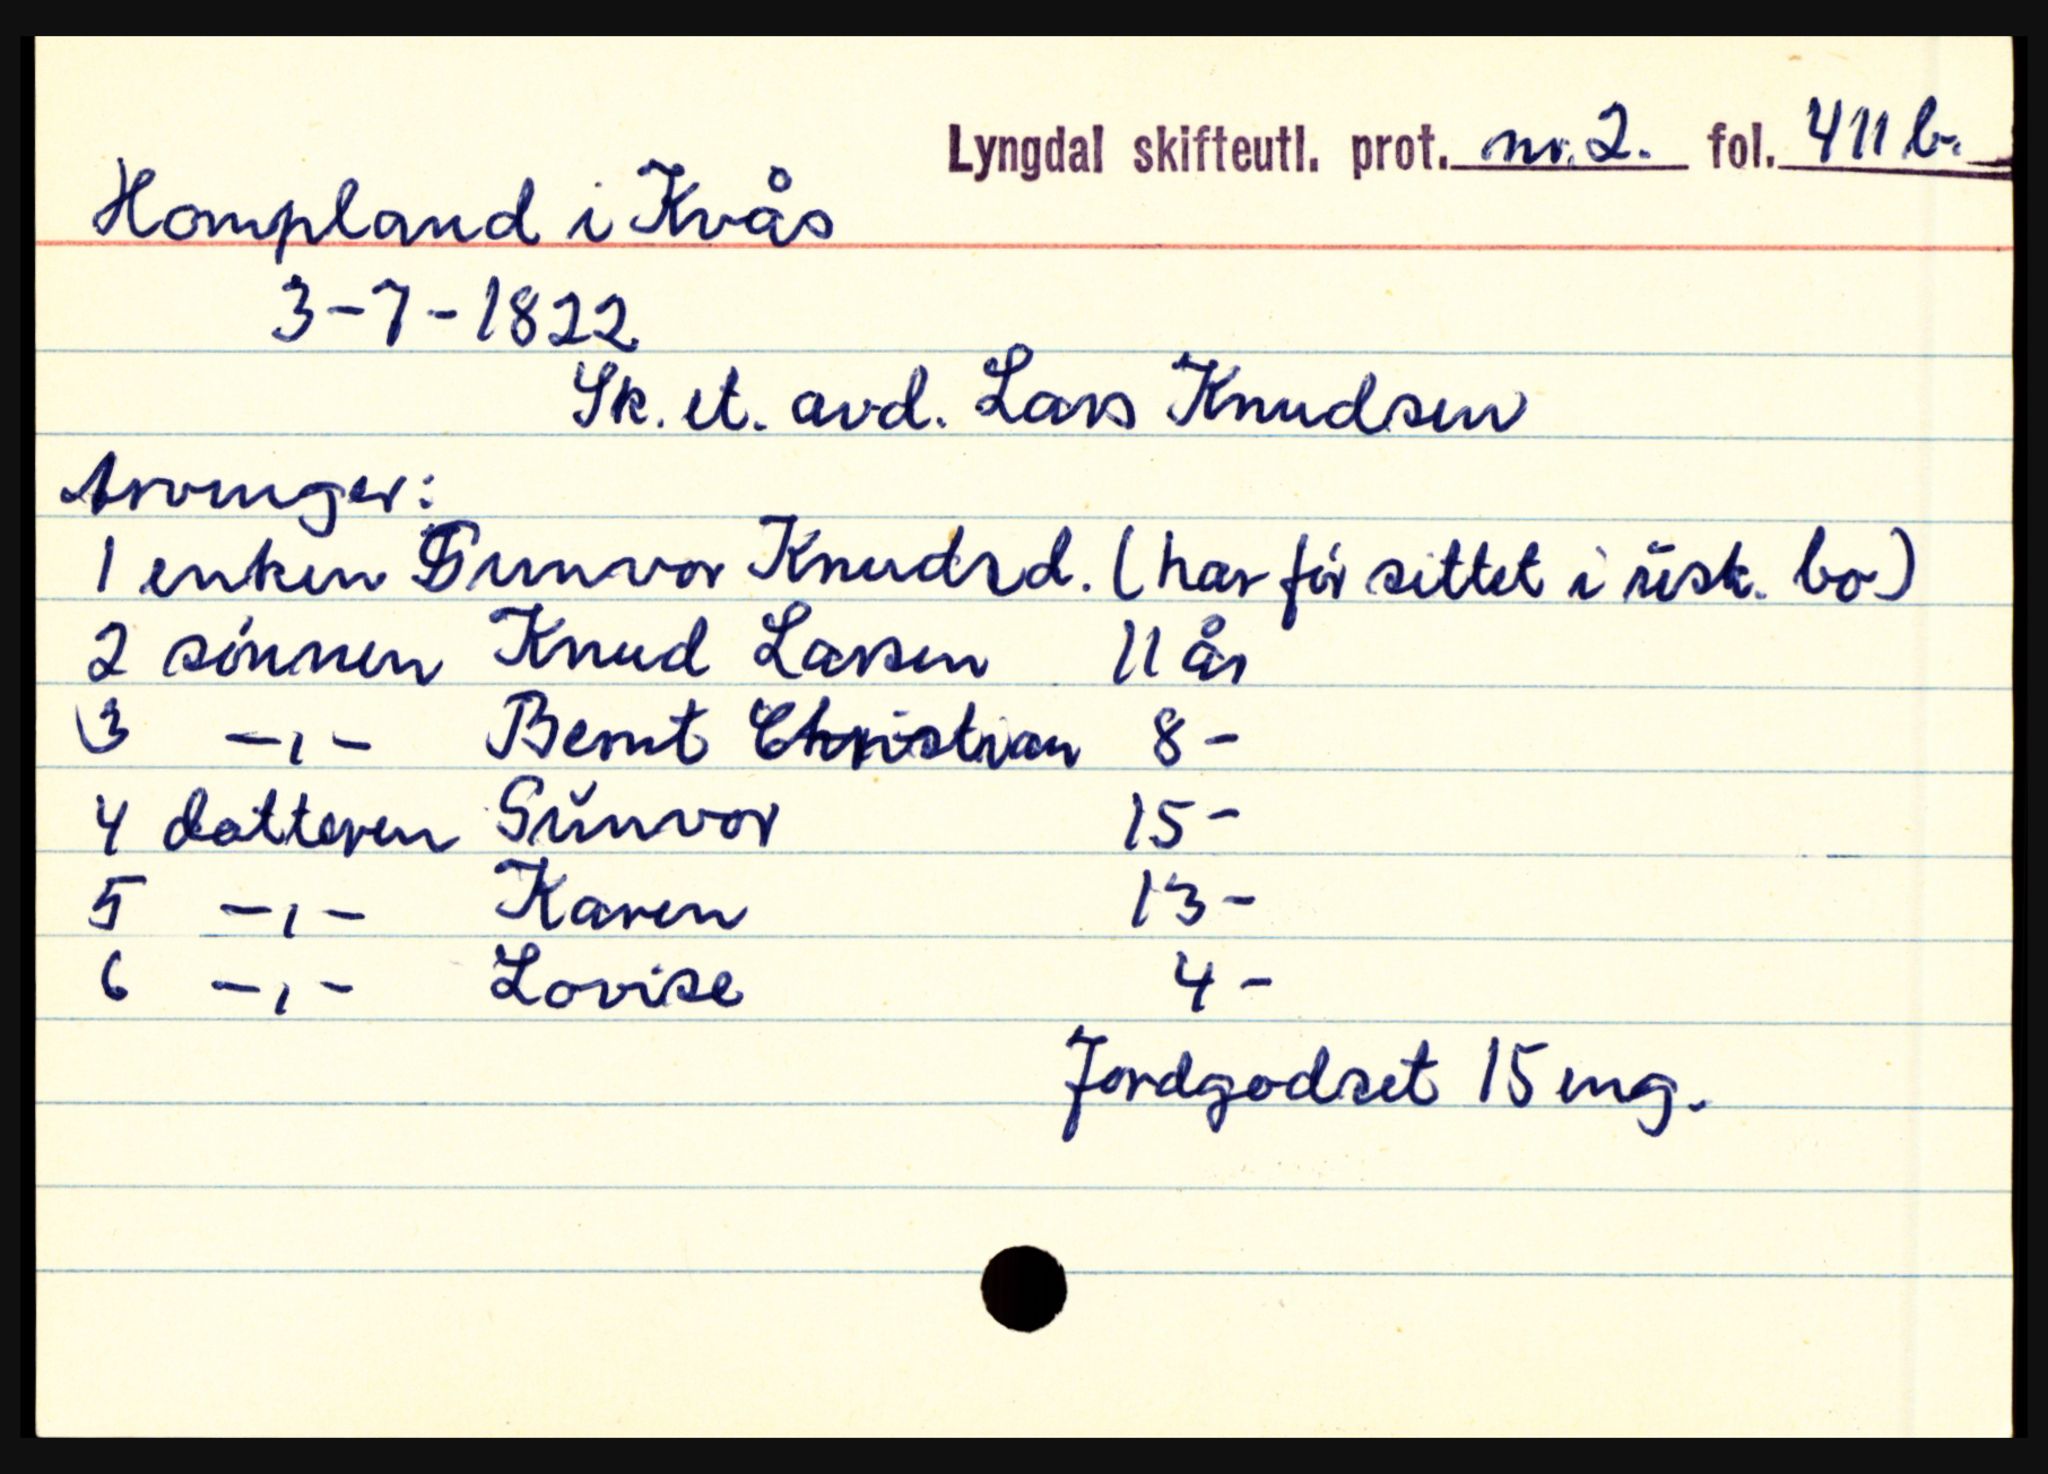 Lyngdal skifteutl. prot. nr. 2. fol. 411 b.
Hompland i Kvås
3-7-1822
Sk. et. avd. Lars Knudsen
Arvinger:
1 enken Gunvor Knudsd. (har før sittet i uisk. bo)
2 sønnen Knud Larsen 11 år
3 -,- Bernt Christian 8 -
4 datteren Gŭnvor 15 -
5 -,- Karen 13 -
6 -,- Lovise 4 -
Jordgodset 15 eng.